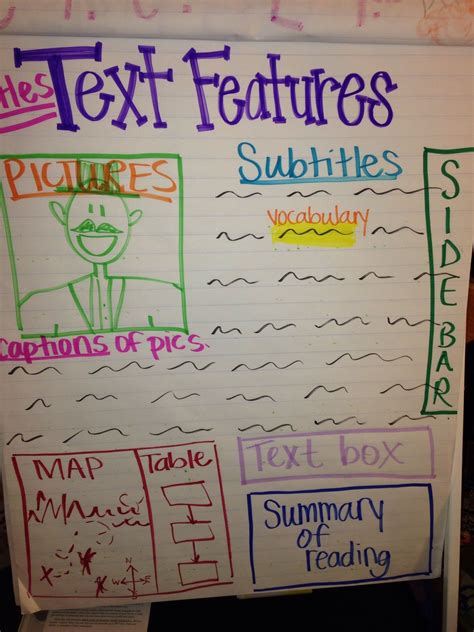 Text Features
tles
PICTURES
Subtitles
vocabulary
SIDE BAR
Captions of pics.
MAP
Table
N
W
E
S
Text box
Summary
of
reading